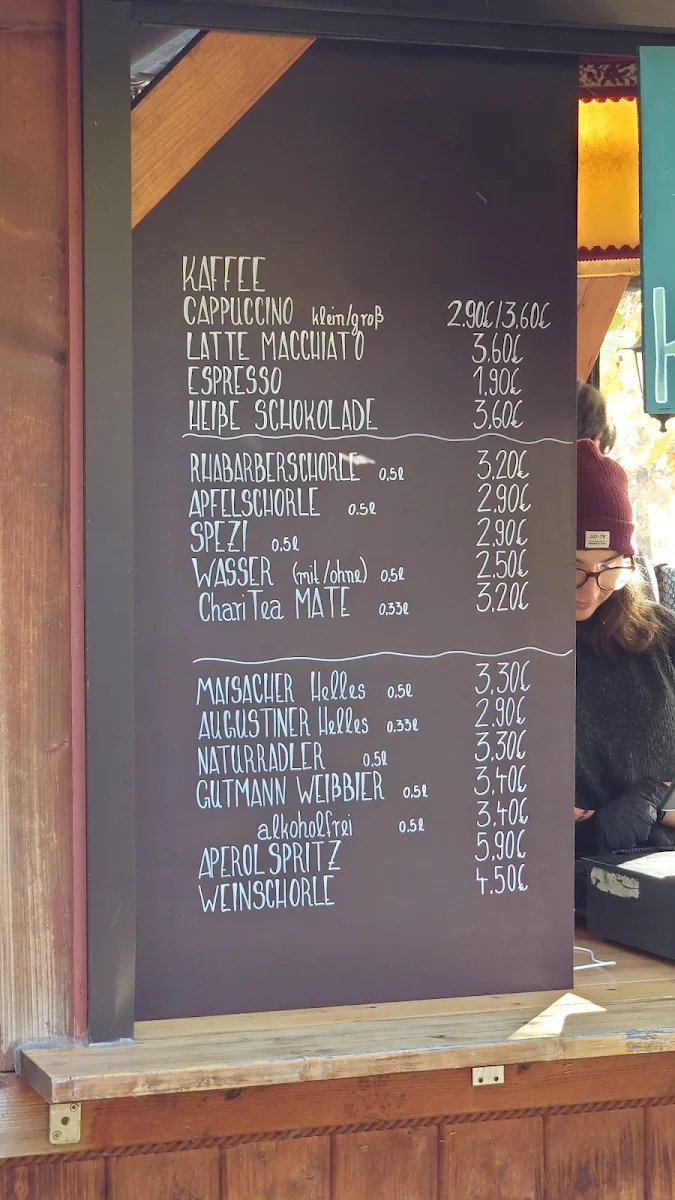 KAFFEE
CAPPUCCINO klein/groß 2.90€/3.60€
LATTE MACCHIATO 3.60€
ESPRESSO 1.90€
HEIßE SCHOKOLADE 3.60€
RHABARBERSCHORLE 0,5l 3,20€
APFELSCHORLE 0,5l 2.90€
SPEZI 0,5l 2.90€
WASSER (mit/ohne) 0,5l 2,50€
ChariTea MATE 0,33l 3,20€
MAISACHER Helles 0,5l 3,30€
AUGUSTINER Helles 0,33l 2.90€
NATURRADLER 0,5l 3,30€
GUTMANN WEIßBIER 0,5l 3,40€
alkoholfrei 0,5l 3,40€
APEROL SPRITZ 5,90€
WEINSCHORLE 4,50€